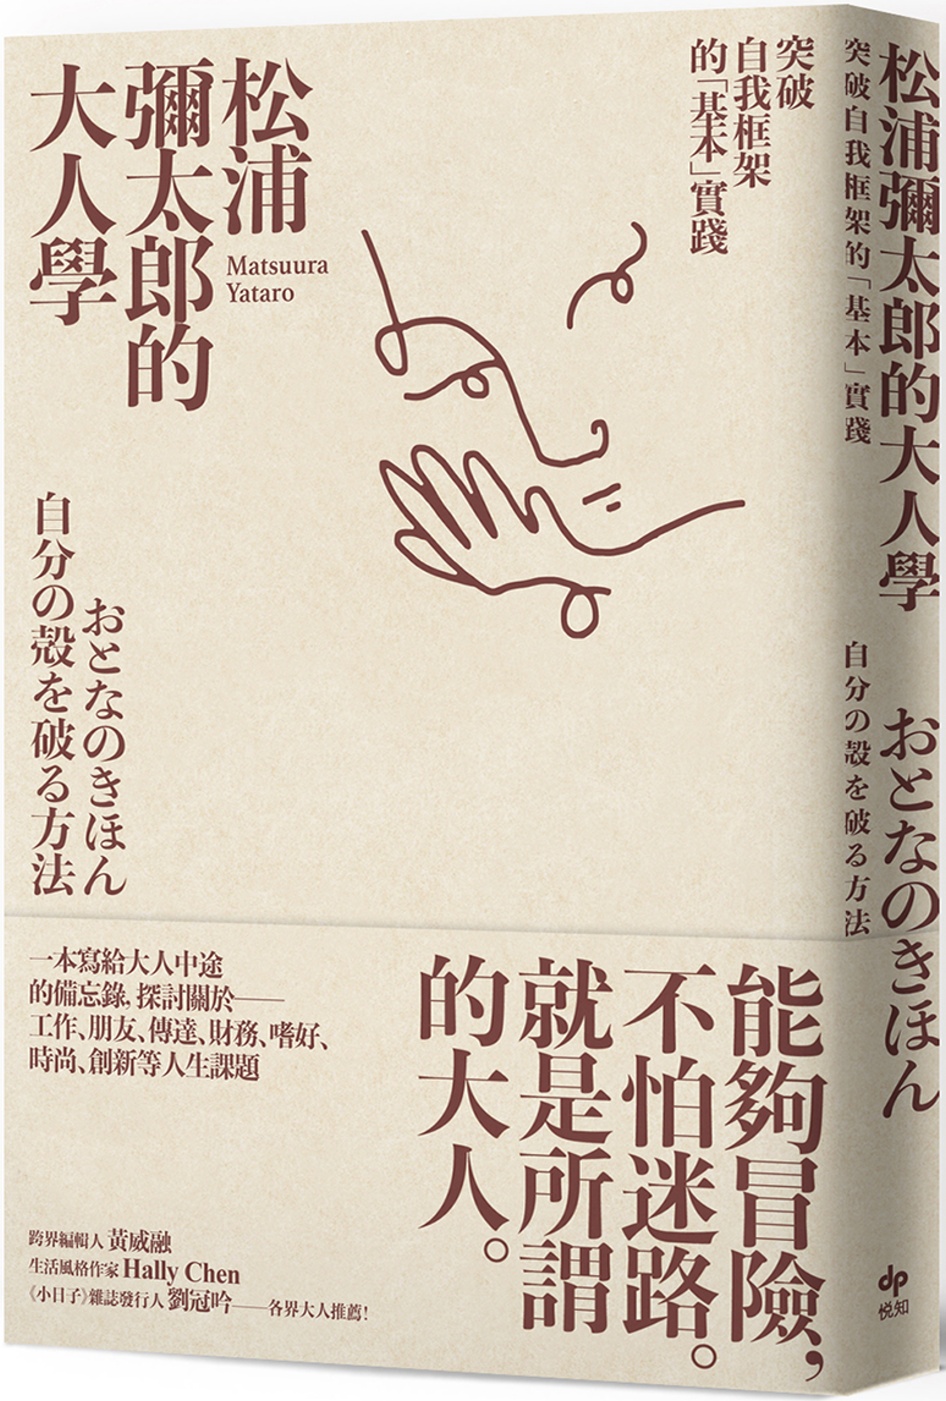 突破
自我框架
的「基本」實踐
松浦
彌太郎的
大人學
Matsuura
Yataro
おとなのきほん
自分の殻を破る方法
能夠冒險,
不怕迷路。
就是所謂
的大人。
一本寫給大人中途
的備忘錄,探討關於——
工作、朋友、傳達、財務、嗜好、
時尚、創新等人生課題
跨界編輯人 黃威融
生活風格作家 Hally Chen
《小日子》雜誌發行人 劉冠吟——各界大人推薦!
松浦彌太郎的大人學 おとなのきほん
突破自我框架的「基本」實踐 自分の殻を破る方法
dp
悅知